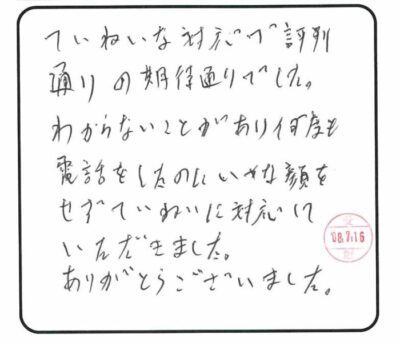 ていねいな対応で評判
通りの期待通りでした。
わからないことがあり何度も
電話をしたのにいやな顔を
せずていねいに対応して
いただきました。
ありがとうございました。
08.7.16